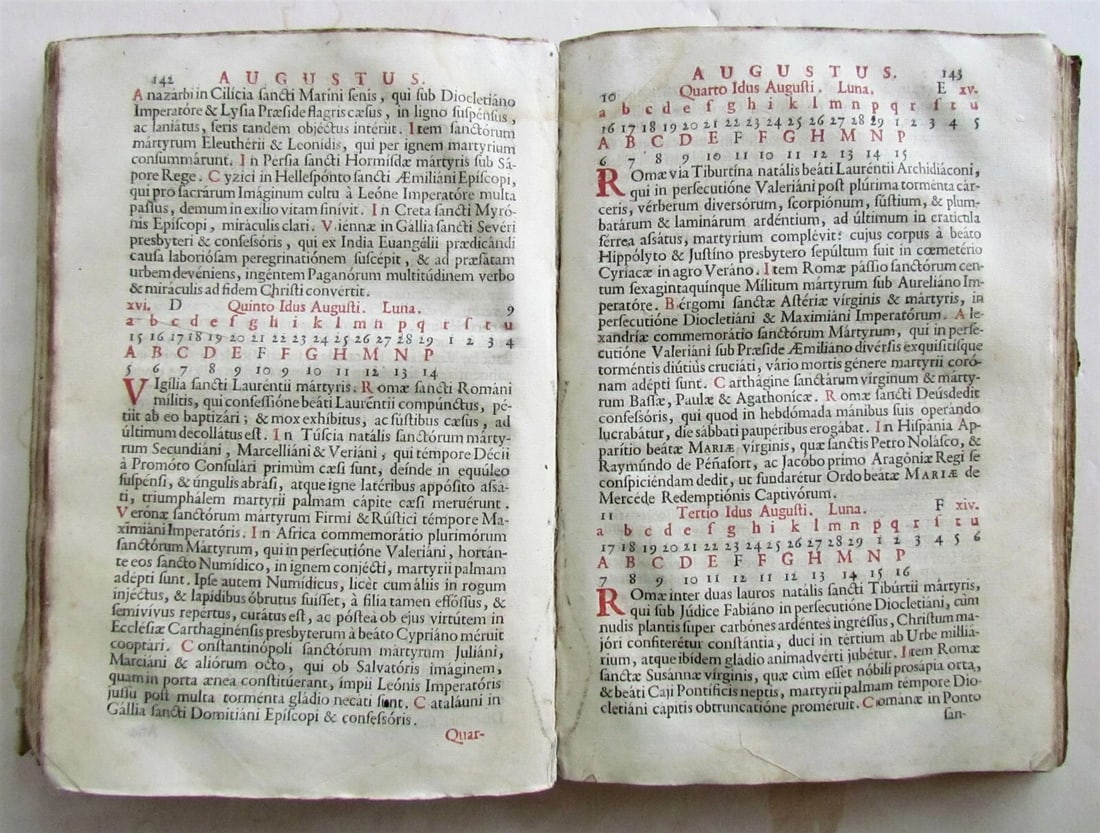 142 AUGUSTUS.
Anazárbi in Cilícia ſancti Marini ſenis, qui ſub Diocletiáno
Imperatóre & Lyſia Præſide flagris cæſus, in ligno ſuſpénſus,
ac laniátus, feris tandem objéctus intériit. Item ſanctórum
mártyrum Eleuthérii & Leonidis, qui per ignem martyrium
conſummárunt. In Perſia ſancti Hormiſdæ mártyris ſub Sá-
pore Rege. Cyzici in Helleſpónto ſancti Æmiliáni Epiſcopi,
qui pro ſacrárum Imáginum cultu à Leóne Imperatóre multa
paſſus, demum in exilio vitam finívit. In Creta ſancti Myró-
nis Epiſcopi, miráculis clari. Viennæ in Gállia ſancti Sevéri
presbyteri & confeſſóris, qui ex India Euangélii prædicándi
cauſa laborióſam peregrinatiónem ſuſcépit, & ad præfatam
urbem devéniens, ingéntem Paganórum multitúdinem verbo
& miráculis ad fidem Chriſti convertit.
xvi. D Quinto Idus Auguſti. Luna. 9
a b c d e f g h i k l m n p q r ſ t u
15 16 17 18 19 20 21 22 23 24 25 26 27 28 29 1 2 3 4
A B C D E F F G H M N P
5 6 7 8 9 10 9 10 11 12 13 14
VIgília ſancti Lauréntii mártyris. Romæ ſancti Románi
mílitis, qui confeſſióne beáti Lauréntii compúnctus, pé-
tiit ab eo baptizári; & mox exhíbitus, ac fúſtibus cæſus, ad
últimum decollátus eſt. In Túſcia natális ſanctórum márty-
rum Secundiáni, Marcelliáni & Veriáni, qui témpore Décii
à Promóto Conſulári primùm cæſi ſunt, deínde in equúleo
ſuſpénſi, & úngulis abráſi, atque igne latéribus appóſito aſſá-
ti, triumphálem martyrii palmam cápite cæſi meruérunt.
Veronæ ſanctórum mártyrum Firmi & Rúſtici témpore Ma-
ximiáni Imperatóris. In Africa commemorátio plurimórum
ſanctórum Mártyrum, qui in perſecutióne Valeriáni, hortán-
te eos ſancto Numídico, in ignem conjécti, martyrii palmam
adépti ſunt. Ipſe autem Numídicus, licèt cum áliis in rogum
injéctus, & lapídibus óbrutus fuíſſet, à fília tamen effóſſus, &
ſemivívus repértus, curátus eſt; ac póſtea ob ejus virtútem in
Eccléſiæ Carthaginénſis presbyterum à beáto Cypriáno méruit
cooptári. Conſtantinópoli ſanctórum mártyrum Juliáni,
Marciáni & aliórum octo, qui ob Salvatóris imáginem,
quam in porta ænea conſtitúerant, ímpii Leónis Imperatóris
juſſu poſt multa torménta gládio necáti ſunt. Cataláuni in
Gállia ſancti Domitiáni Epíſcopi & confeſſóris.
Quar-
AUGUSTUS. 143
10 Quarto Idus Auguſti. Luna. E xv.
a b c d e f g h i k l m n p q r ſ t u
16 17 18 19 20 21 22 23 24 25 26 27 28 29 1 2 3 4 5
A B C D E F F G H M N P
6 7 8 9 10 11 10 11 12 13 14 15
ROmæ via Tiburtína natális beáti Lauréntii Archidiáconi,
qui in perſecutióne Valeriáni poſt plúrima torménta cár-
ceris, vérberum diverſórum, ſcorpiónum, fúſtium, & plum-
batárum & laminárum ardéntium, ad últimum in cratícula
férrea aſſátus, martyrium complévit: cujus corpus à beáto
Hippólyto & Juſtíno presbytero ſepúltum fuit in cœmetério
Cyriacæ in agro Veráno. Item Romæ páſſio ſanctórum cen-
tum ſexagintaquínque Mílitum mártyrum ſub Aureliáno Im-
peratóre. Bérgomi ſanctæ Aſtériæ vírginis & mártyris, in
perſecutióne Diocletiáni & Maximiáni Imperatórum. Ale-
xandríæ commemorátio ſanctórum Mártyrum, qui in perſe-
cutióne Valeriáni ſub Præſide Æmiliáno divérſis exquiſitíſque
torméntis diútiùs cruciáti, vário mortis génere martyrii coró-
nam adépti ſunt. Carthágine ſanctárum vírginum & márty-
rum Baſſæ, Paulæ & Agathonícæ. Romæ ſancti Deúsdedit
confeſſóris, qui quod in hebdómada mánibus ſuis operándo
lucrabátur, die ſábbati paupéribus erogábat. In Hiſpánia Ap-
parítio beátæ MARIÆ vírginis, quæ ſanctis Petro Nolásco, &
Raymúndo de Péñafort, ac Jacóbo primo Aragóniæ Regi ſe
conſpiciéndam dedit, ut fundarétur Ordo beátæ MARIÆ de
Mercéde Redemptiónis Captivórum.
11 Tertio Idus Auguſti. Luna. F xiv.
a b c d e f g h i k l m n p q r ſ t u
17 18 19 20 21 22 23 24 25 26 27 28 29 1 2 3 4 5 6
A B C D E F F G H M N P
7 8 9 10 11 12 11 12 13 14 15 16
ROmæ inter duas lauros natális ſancti Tibúrtii mártyris,
qui ſub Júdice Fabiáno in perſecutióne Diocletiáni, cùm
nudis plantis ſuper carbónes ardéntes ingréſſus, Chriſtum ma-
jóri confiterétur conſtántia, duci in tértium ab Urbe milliá-
rium, atque ibídem gládio animadvérti jubétur. Item Romæ
ſanctæ Suſánnæ vírginis, quæ cùm eſſet nóbili proſápia orta,
& beáti Caji Pontíficis neptis, martyrii palmam témpore Dio-
cletiáni cápitis obtruncatióne proméruit. Cománæ in Ponto
ſan-